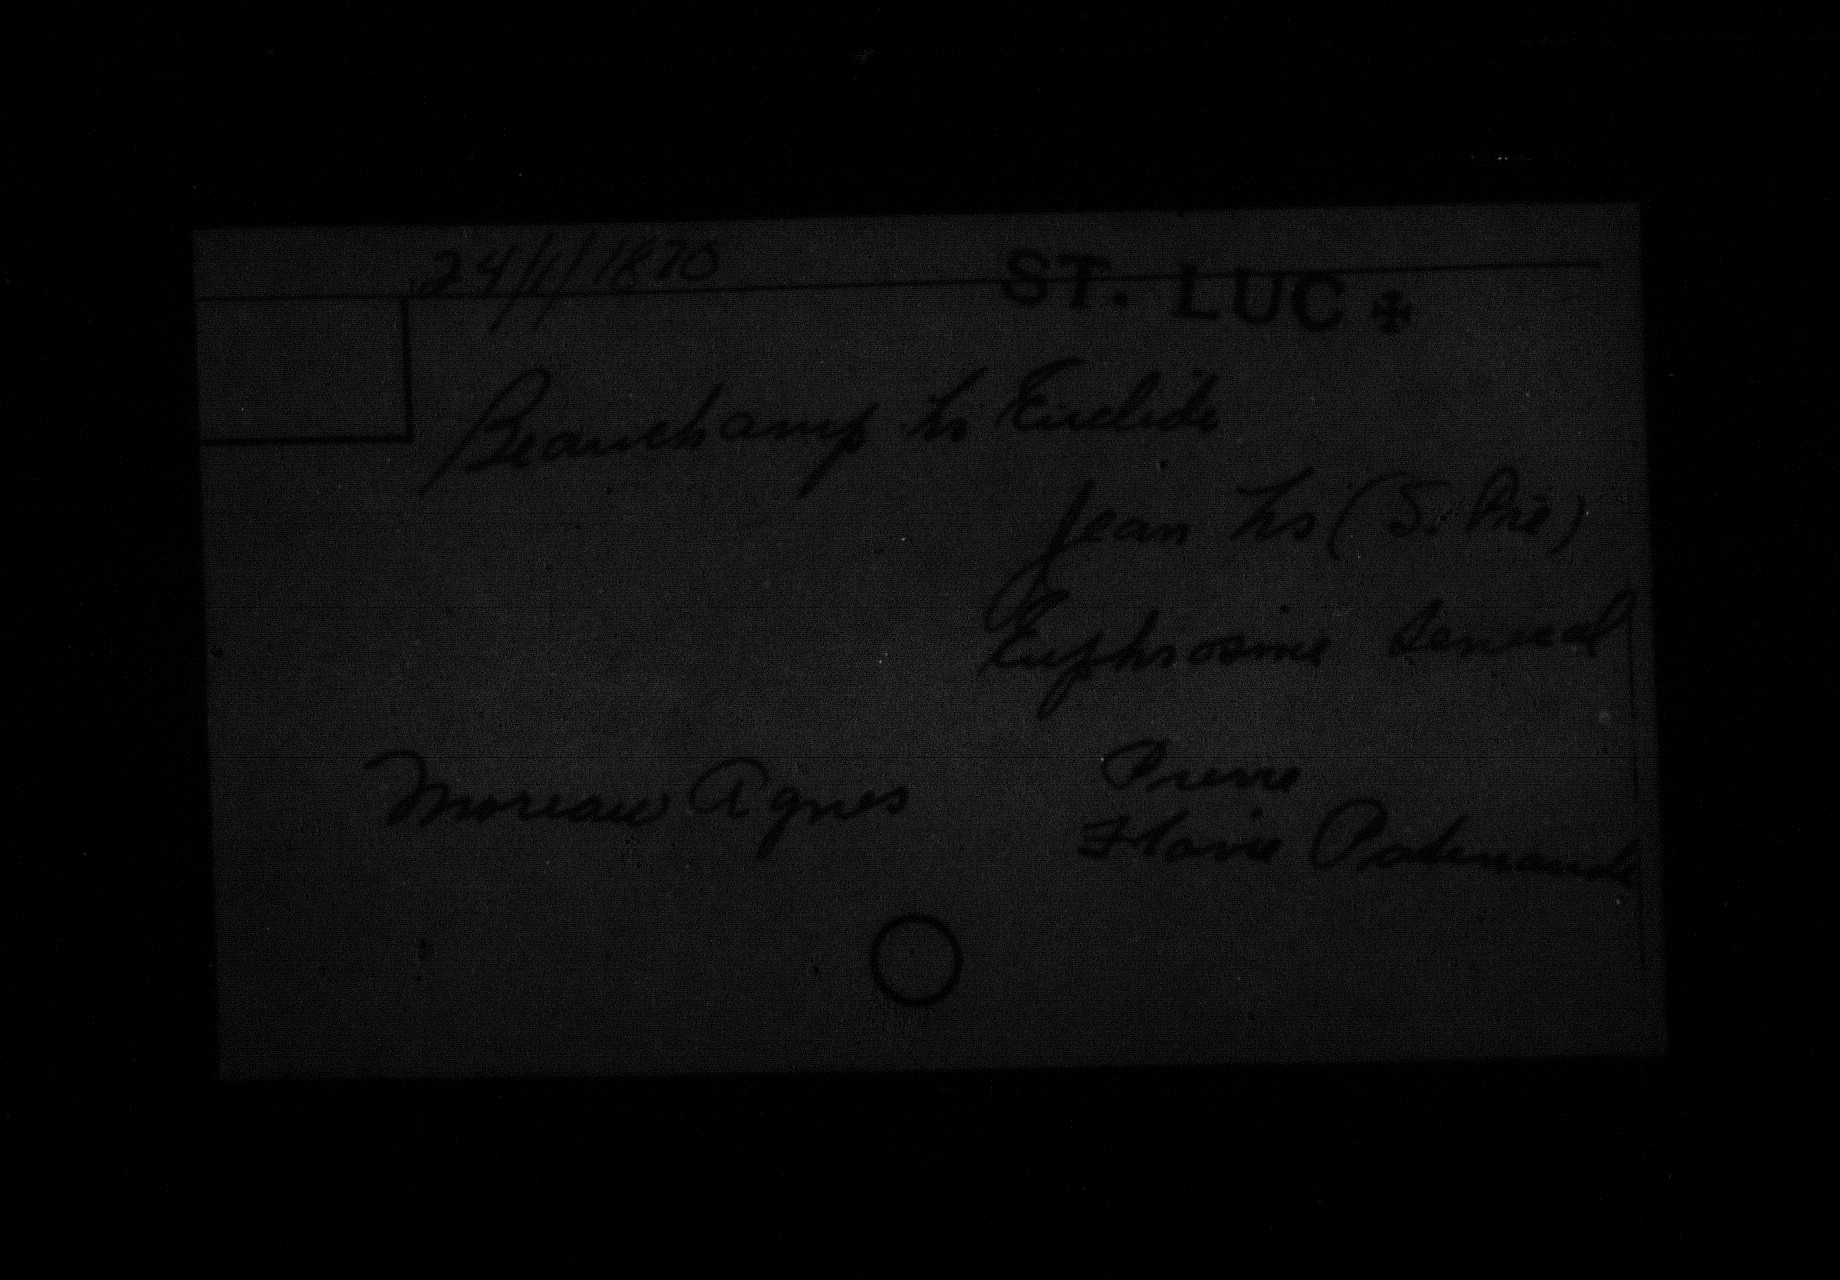 24/1/1870
ST. LUC ✠
Beauchamp Ls Euclide
Jean Ls (S. Pie)
Euphrosine Senecal
Moreau Agnes
Pierre
Flavie Patenaude